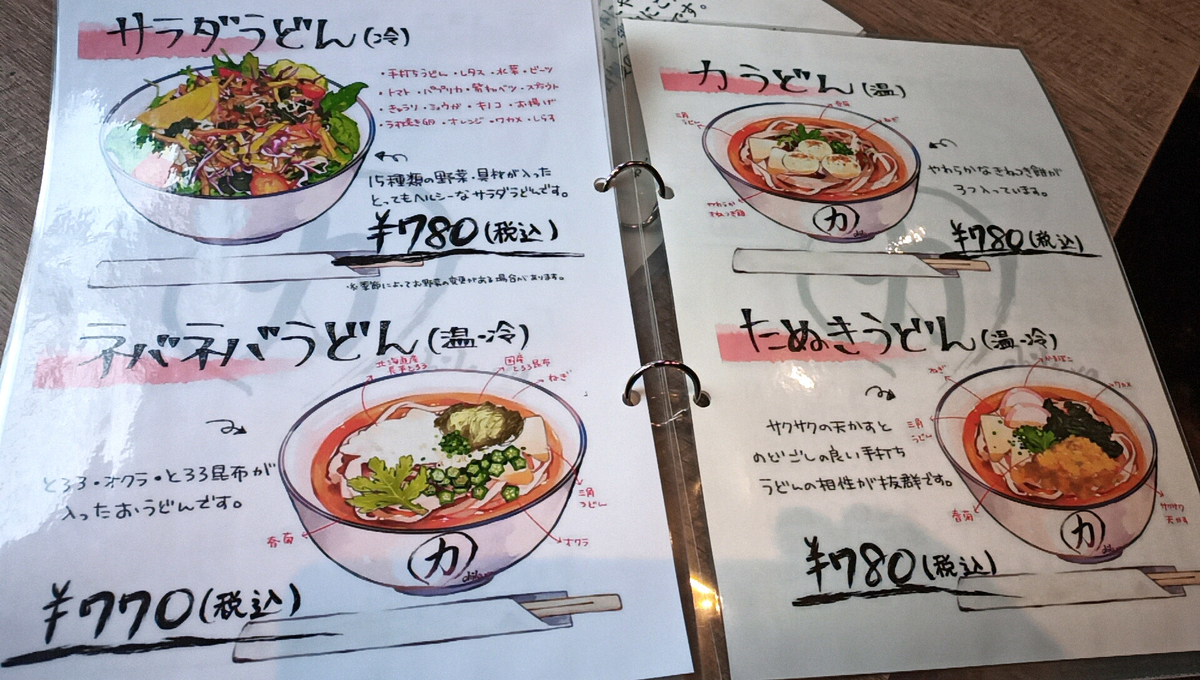 サラダうどん(冷)
・手打ちうどん・レタス・水菜・ビーツ
・トマト・パプリカ・紫キャベツ・スプラウト
・きゅうり・ミョウガ・キノコ・お揚げ
・うす焼き卵・オレンジ・ワカメ・しらす
15種類の野菜・具材が入った
とってもヘルシーなサラダうどんです。
¥780(税込)
※季節によってお野菜の変更がある場合があります。
ネバネバうどん(温・冷)
北海道産
長芋とろろ
国産
とろろ昆布
ねぎ
とろろ・オクラ・とろろ昆布が
入ったおうどんです。
三角
うどん
春菊
オクラ
力
¥770(税込)
力うどん(温)
三角
うどん
ねぎ
やわらか
きねつき餅
やわらかなきねつき餅が
3つ入っています。
力
¥780(税込)
たぬきうどん(温・冷)
ねぎ
かまぼこ
ワカメ
三角
うどん
サクサクの天かすと
のどごしの良い手打ち
うどんの相性が抜群です。
春菊
サクサク
天かす
力
¥780(税込)